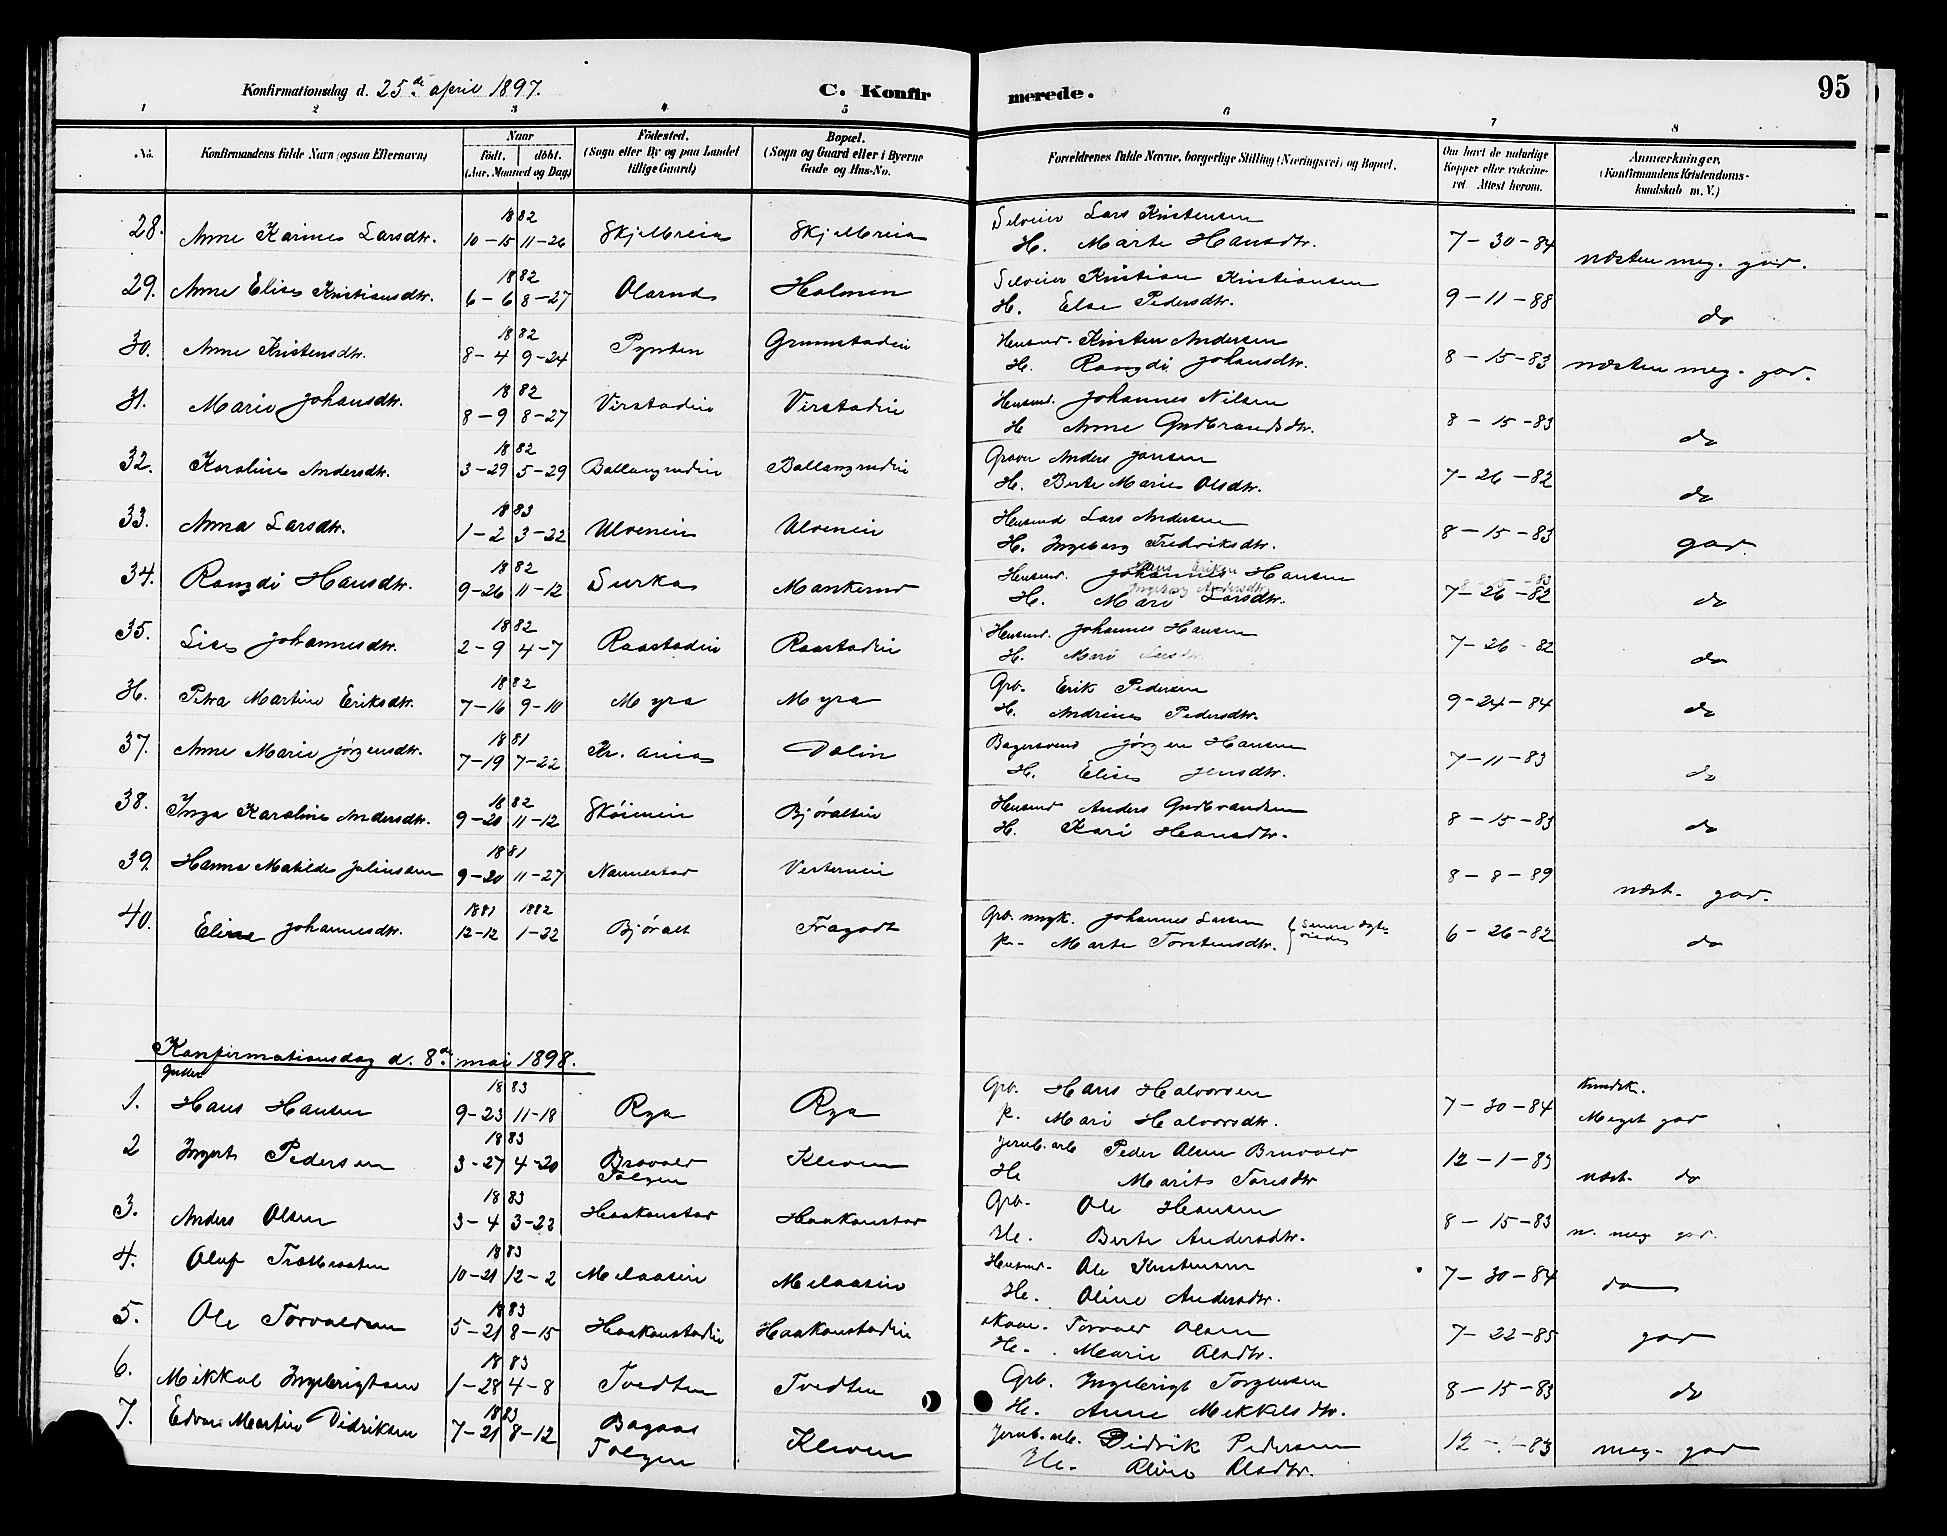 Konfirmationsdag d. 25de april 1897. C. Konfirmerede. 95
1 2 3 4 5 6 7 8
No. Konfirmandens fulde Navn (ogsaa Efternavn) Naar født, døbt. (Aar, Maaned og Dag) Fødested. (Sogn eller By og paa Landet tillige Gaard) Bopæl. (Sogn og Gaard eller i Byerne Gade og Hus-No. Forældrenes fulde Navne, borgerlige Stilling (Næringsvei) og Bopæl. Om havt de naturlige Kopper eller vaccineret. Attest herom. Anmærkninger, (Konfirmandens Kristendomskundskab m. V.)
28. Anne Karine Larsdtr. 1882 10-15 11-26 Skjelbreia Skjelbreia Selveier Lars Kristensen 7-30-84 næsten meg. god.
H. Marte Hansdtr.
29. Anne Elise Kristiansdtr. 1882 6-6 8-27 Holmen Selveier Kristian Kristiansen 9-11-88 do
H. Else Pedersdtr.
30. Anne Kristensdtr. 1882 8-4 9-24 Pynten Grimstadei Husmd. Kristen Andersen 8-15-83 næsten meg. god.
H. Rangdi Johansdtr.
31. Marie Johansdtr. 1882 8-9 8-27 Verstadeie Verstadeie Husmd. Johannes Nilsen 8-15-83 do
H Anne Gudbrandsdtr.
32. Karoline Andersdtr. 1882 3-29 5-29 Ballangrudeie Ballangrudeie Graver Anders Jansen 7-26-82 do
H. Berte Marie Olsdtr.
33. Anna Larsdtr. 1883 1-2 3-22 Ulveneie Ulveneie Husmd Lars Andersen 8-15-83 god.
H. Ingeborg Fredriksdtr.
34. Rangdi Hansdtr. 1882 9-26 11-12 Surka Mankerud Husmd. Johannes Hansen 7-26-82 do
H. Mari Larsdtr.
35. Lise Johannesdtr. 1882 2-9 4-7 Raastadeie Raastadeie Husmd. Johannes Hansen 7-26-82 do
H. Mari Larsdtr.
36. Petra Martine Eriksdtr. 1882 7-16 9-10 Myra Myra Grb. Erik Pedersen 9-24-84 do
H. Andrine Pedersdtr.
37. Anne Marie Jørgensdtr. 1881 7-19 7-22 Kr. ania Dalin Bagersvend Jørgen Hansen 7-11-83 do
H. Elise Jensdtr.
38. Inga Karoline Andersdtr. 1882 9-20 11-12 Skøieneie Bjøralteie Husmd Anders Gudbrandsen 8-15-83 do
H. Kari Hansdtr.
39. Hanna Matilde Juliusdtr 1881 9-20 11-27 Nannestad Verterneie 8-8-89 næst. god.
40. Eline Johannesdtr. 1881 12-12 1882 1-22 Bjøralt Fragodt Grb. ungk. Johannes Larsen { Senere ægteviede 6-26-82 do
p. Marte Torstensdtr.
Konfirmationsdag d. 8de mai 1898.
Gutter Kundsk.
1. Hans Hansen 1883 9-23 11-18 Rya Rya Grb. Hans Halvorsen 7-30-84 Meget god
p. Mari Halvorsdtr.
2 Ingert Pedersen 1883 3-27 4-20 Bruvold Tolgen Kleven Jernb. arb Peder Olsen Bruvold 12-1-83 næst. do
He Marit Toresdtr
3. Anders Olsen 1883 3-4 3-22 Haakonstad Haakonstad Grb. Ole Hansen 8-15-83 n. meg god.
He. Berte Andersdtr.
4. Oluf 1883 10-21 12-2 Melaaseie Melaaseie Husmd. Ole Kristensen 7-30-84 do
He. Oline Andersdtr.
5. Ole Torvaldsen 1883 5-21 8-15 Haakonstadeie Haakonstadeie Torvald Olsen 7-22-85 god
He. Marie Olsdtr.
6. Mikkal Ingebrigtsen 1883 1-28 4-8 Tvedten Tvedten Grb. Ingebrigt Torgersen 8-15-83 do
He. Anne Mekkelsdtr.
7. Edvar Martin Didriksen 1883 7-21 8-12 Bagaas Tolgen Kleven Jernb. arb. Didrik Pedersen 12-1-83 meg. god
He. Oline Olsdtr.